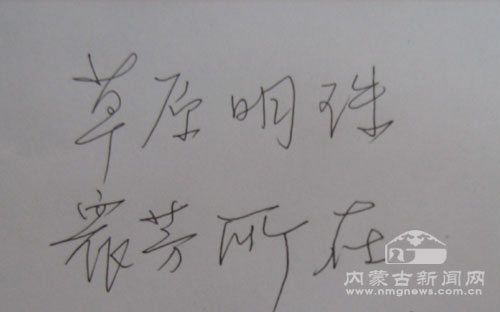 草原明珠
衆芳所在
内蒙古新闻网
www.nmgnews.com.cn